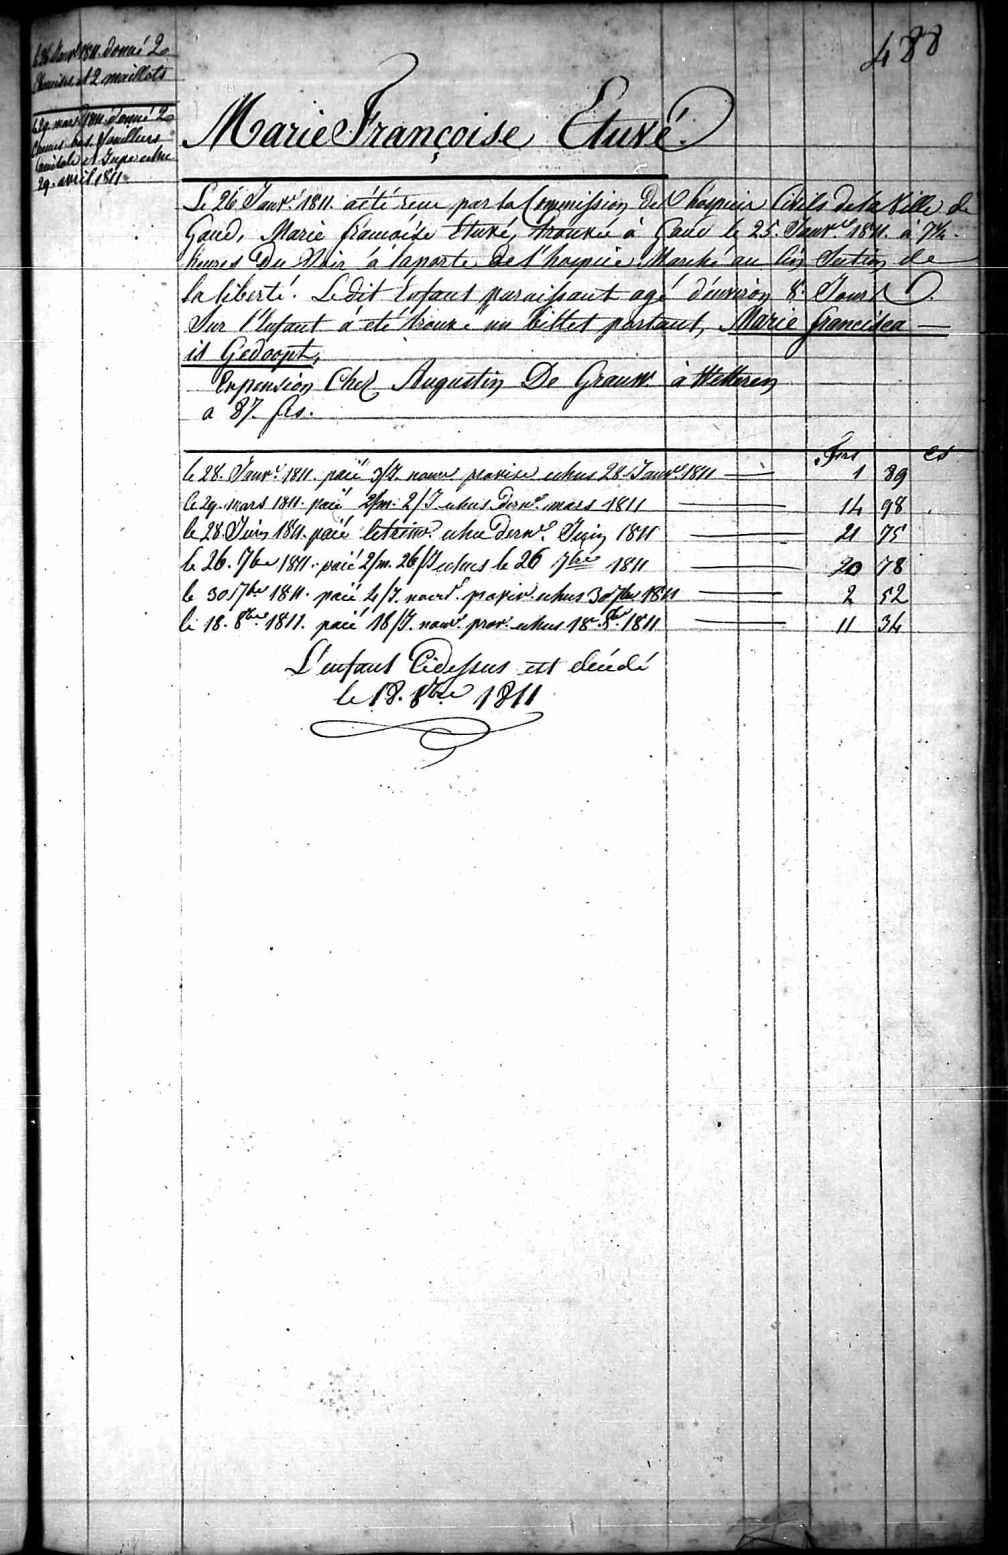 488
le 26 Janvr 1811. donné 2
Chemises et 2 maillots
le 29. mars 1811. donné 2
bas
et Jupe echu
29. avril 1811
Marie Françoise Etuvé.
Le 26 Janvr 1811. a été recue par la Commission des hospices Civils de la Ville de
Gand, Marie francoise Etuvé, trouvée à Gand le 25. Janvr 1811. a 7½
heures Du Soir à la porte de l'hospice Marché au lin Section de
la liberté. Le dit Enfant paraissant agé d'environ 8. Jours
Sur l'Enfant á eté trouvé un billet portant, Marie francisca
is Gedoopt,
En pension Chez Augustin De Grauw. à Wetteren
a 87. frs.
Frs Cs
le 28. Janvr 1811. paié 3/J. nourr provise echus 28 Janvr 1811 — 1 89
le 29. mars 1811. paié 2/m. 2/J echus dernr mars 1811 — 14 98
le 28 Juin 1811. paié le trim. echu dernr Juin 1811 — 21 75
le 26. 7bre 1811. paié 2/m. 26/J echus le 26 7bre 1811 — 20 78
le 30 7bre 1811. paié 4/J. nourr. provis. echus 30 7bre 1811 — 2 52
le 18. 8bre 1811. paié 18/J. nourr. prov. echus 18. 8br 1811 — 11 34
L'enfant Cidessus est décédé
le 18. 8bre 1811